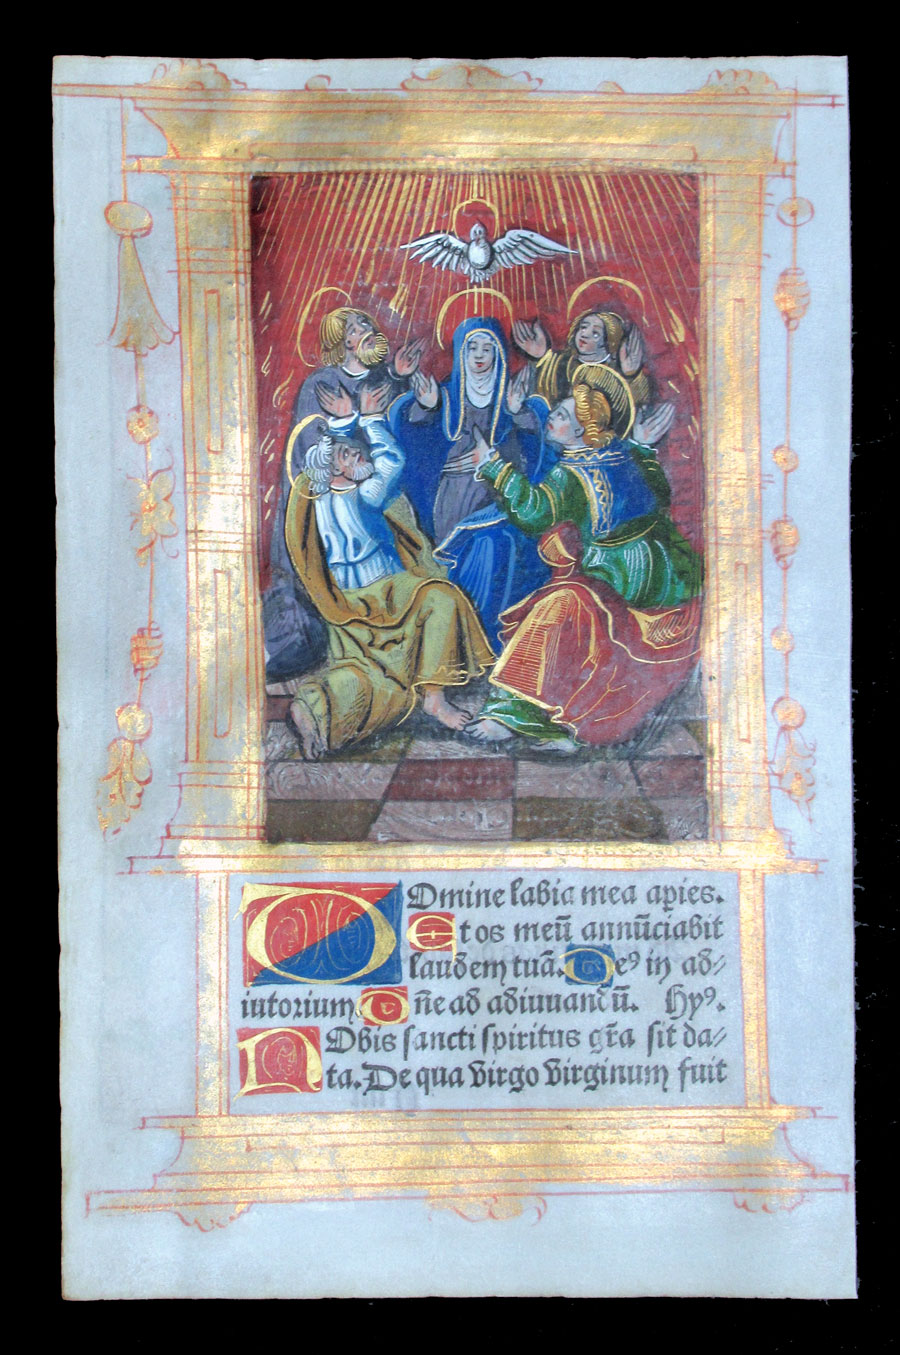 Domine labia mea apies.
Et os meū annūciabit
laudem tuā. Deꝰ in ad⸗
iutorium Dn̄e ad adiuuandū. Hyꝰ.
Nobis sancti spiritus gr̄a sit da⸗
ta. De qua virgo virginum fuit